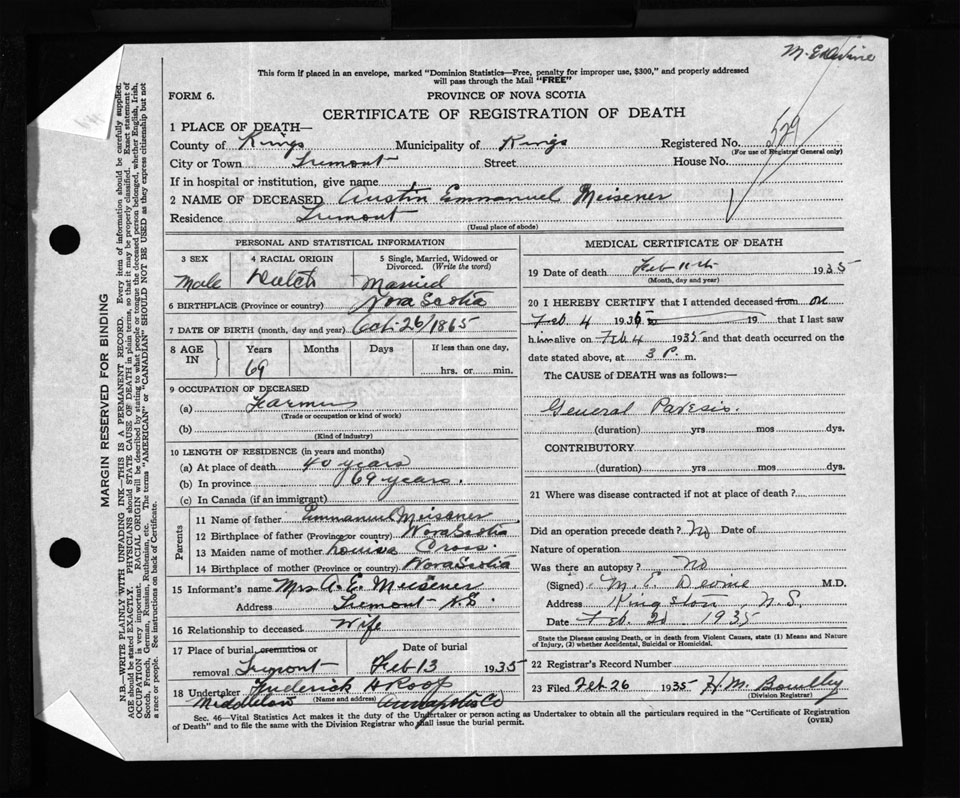 M. E. Devine
This form if placed in an envelope, marked "Dominion Statistics—Free, penalty for improper use, $300," and properly addressed
will pass through the Mail "FREE"
FORM 6. PROVINCE OF NOVA SCOTIA
CERTIFICATE OF REGISTRATION OF DEATH
1 PLACE OF DEATH—
County of Kings Municipality of Kings Registered No. 529
(For use of Registrar General only)
City or Town Tremont Street House No.
If in hospital or institution, give name
2 NAME OF DECEASED Austin Emmanuel Meisener
Residence Tremont
(Usual place of abode)
PERSONAL AND STATISTICAL INFORMATION
3 SEX 4 RACIAL ORIGIN 5 Single, Married, Widowed or
Divorced. (Write the word)
Male Dutch Married
6 BIRTHPLACE (Province or country) Nova Scotia
7 DATE OF BIRTH (month, day and year) Oct. 26/1865
8 AGE IN Years Months Days If less than one day,
69 hrs. or min.
9 OCCUPATION OF DECEASED
(a) Farmer
(Trade or occupation or kind of work)
(b)
(Kind of industry)
10 LENGTH OF RESIDENCE (in years and months)
(a) At place of death 40 years
(b) In province 69 years.
(c) In Canada (if an immigrant)
Parents
11 Name of father Emmanuel Meisener
12 Birthplace of father (Province or country) Nova Scotia
13 Maiden name of mother Louisa Cross
14 Birthplace of mother (Province or country) Nova Scotia
15 Informant's name Mrs A. E. Meisener
Address Tremont N.S.
16 Relationship to deceased Wife
17 Place of burial, cremation or Date of burial
removal Tremont Feb 13 1935
18 Undertaker Frederick H Roop
(Name and address)
Middleton Annapolis Co
MEDICAL CERTIFICATE OF DEATH
19 Date of death Feb 11th 1935
(Month, day and year)
20 I HEREBY CERTIFY that I attended deceased from on
Feb. 4 1935 to 19 that I last saw
him alive on Feb 4 1935 and that death occurred on the
date stated above, at 3 P. m.
The CAUSE of DEATH was as follows:—
General Paresis.
(duration) yrs mos dys.
CONTRIBUTORY
(duration) yrs mos dys.
21 Where was disease contracted if not at place of death?
Did an operation precede death? No Date of
Nature of operation
Was there an autopsy? No
(Signed) M. E. Devine M.D.
Address Kingston, N.S.
Date Feb. 20. 1935
State the Disease causing Death, or in death from Violent Causes, state (1) Means and Nature
of Injury, (2) whether Accidental, Suicidal or Homicidal.
22 Registrar's Record Number
23 Filed Feb 26 1935 H M.
(Division Registrar)
Sec. 46—Vital Statistics Act makes it the duty of the Undertaker or person acting as Undertaker to obtain all the particulars required in the "Certificate of Registration
of Death" and to file the same with the Division Registrar who shall issue the burial permit. (OVER)
MARGIN RESERVED FOR BINDING
N.B.—WRITE PLAINLY WITH UNFADING INK—THIS IS A PERMANENT RECORD. Every item of information should be carefully supplied.
AGE should be stated EXACTLY. PHYSICIANS should STATE CAUSE OF DEATH in plain terms, so that it may be properly classified. Exact statement of
OCCUPATION is very important. RACIAL ORIGIN will be described by stating to what people or tongue the deceased person belonged, whether English, Irish,
Scotch, French, German, Russian, Ruthenian, etc. The terms "AMERICAN" or "CANADIAN" SHOULD NOT BE USED as they express citizenship but not
a race or people. See instructions on back of Certificate.